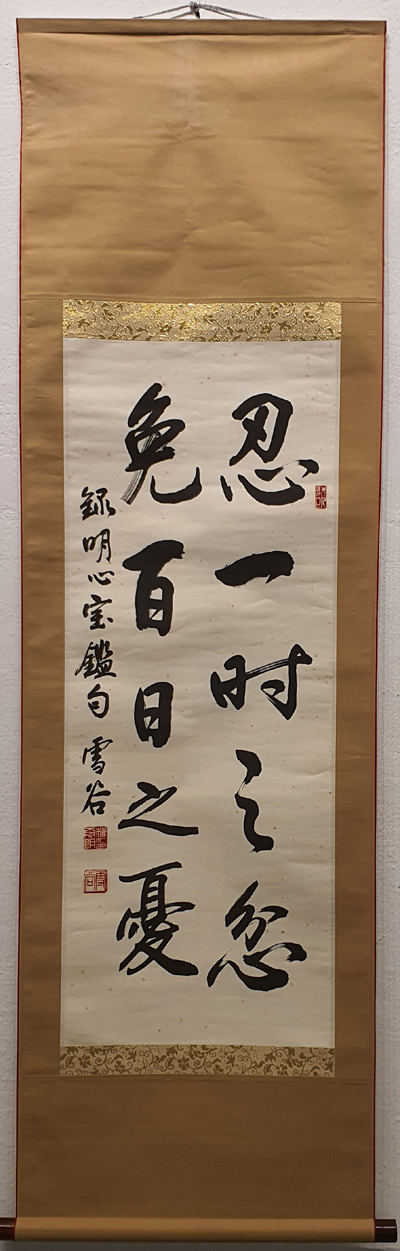 忍一时之忿
免百日之憂
録明心宝鑑句 雪谷